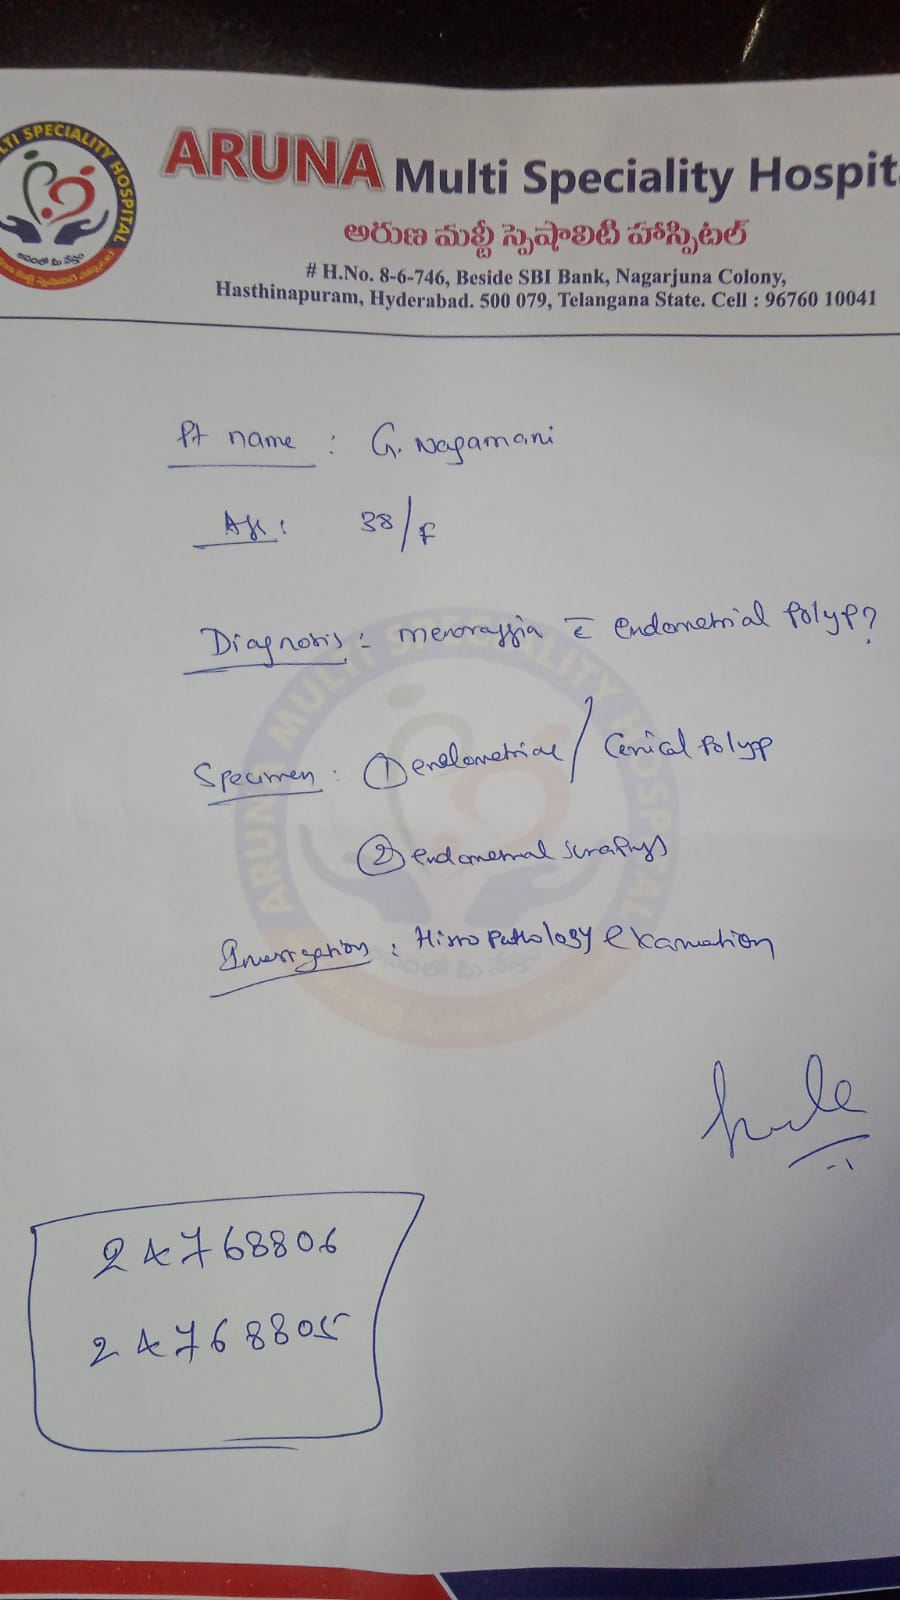 LTI SPECIALITY HOSPITAL
ARUNA Multi Speciality Hospit
అరుణ మల్టీ స్పెషాలిటి హాస్పిటల్
# H.No. 8-6-746, Beside SBI Bank, Nagarjuna Colony,
Hasthinapuram, Hyderabad. 500 079, Telangana State. Cell : 96760 10041
Pt name : G. Nagamani
Age : 38/F
Diagnosis : menoraggia c̄ endometrial Polyp?
Specimen : ① endometrial / Cervical Polyp
② endometrial scrapings
Investigation : Histro pathology examation
24768806
24768805
ARUNA MULTI SPECIALITY HOSPITAL